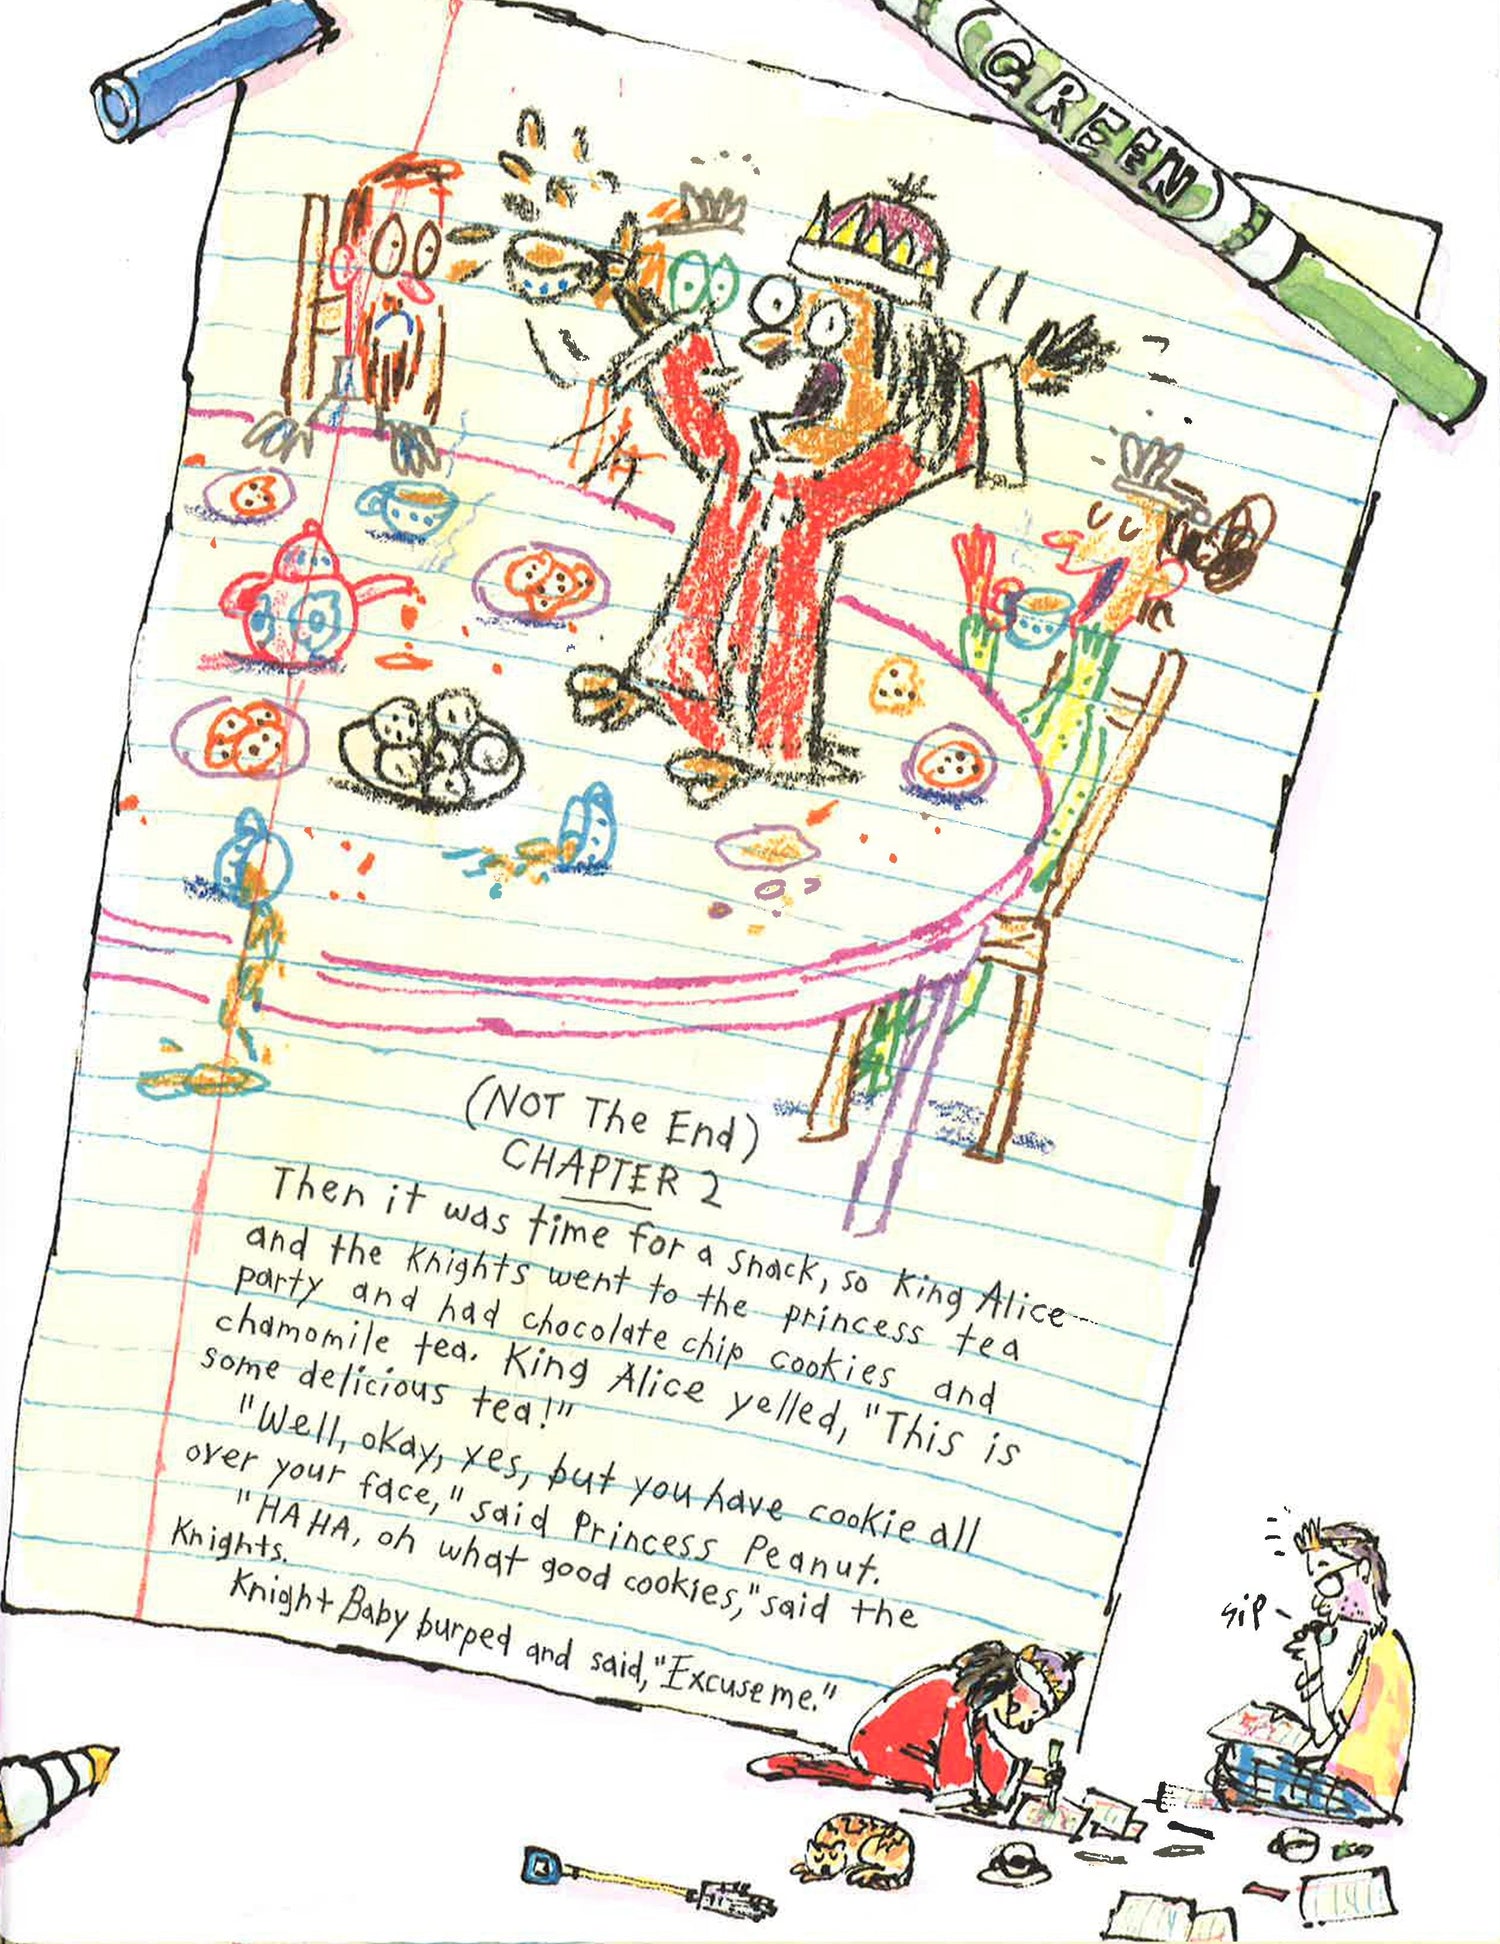 GREEN
(NOT The End)
CHAPTER 2
Then it was time for a snack, so King Alice
and the Knights went to the princess tea
party and had chocolate chip cookies and
chamomile tea. King Alice yelled, "This is
some delicious tea!"
"Well, okay, yes, but you have cookie all
over your face," said Princess Peanut.
"HA HA, oh what good cookies," said the
Knights.
Knight Baby burped and said, "Excuse me."
sip